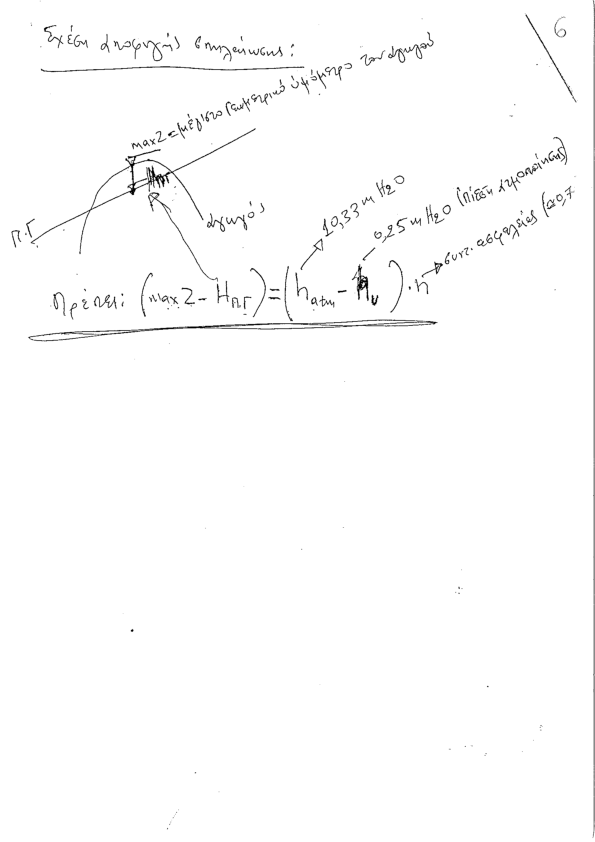 6
Σχέση αποφυγής σπηλαίωσης:
maxZ = μέγιστο γεωμετρικό υψόμετρο του αγωγού
Π.Γ
ΗΠΓ
αγωγός
10,33 m H2O
0,25 m H2O (πίεση ατμοποίησης)
συντ. ασφαλείας (≈0,7
Πρέπει: (maxZ - HΠΓ) = (hatm - hv) · n